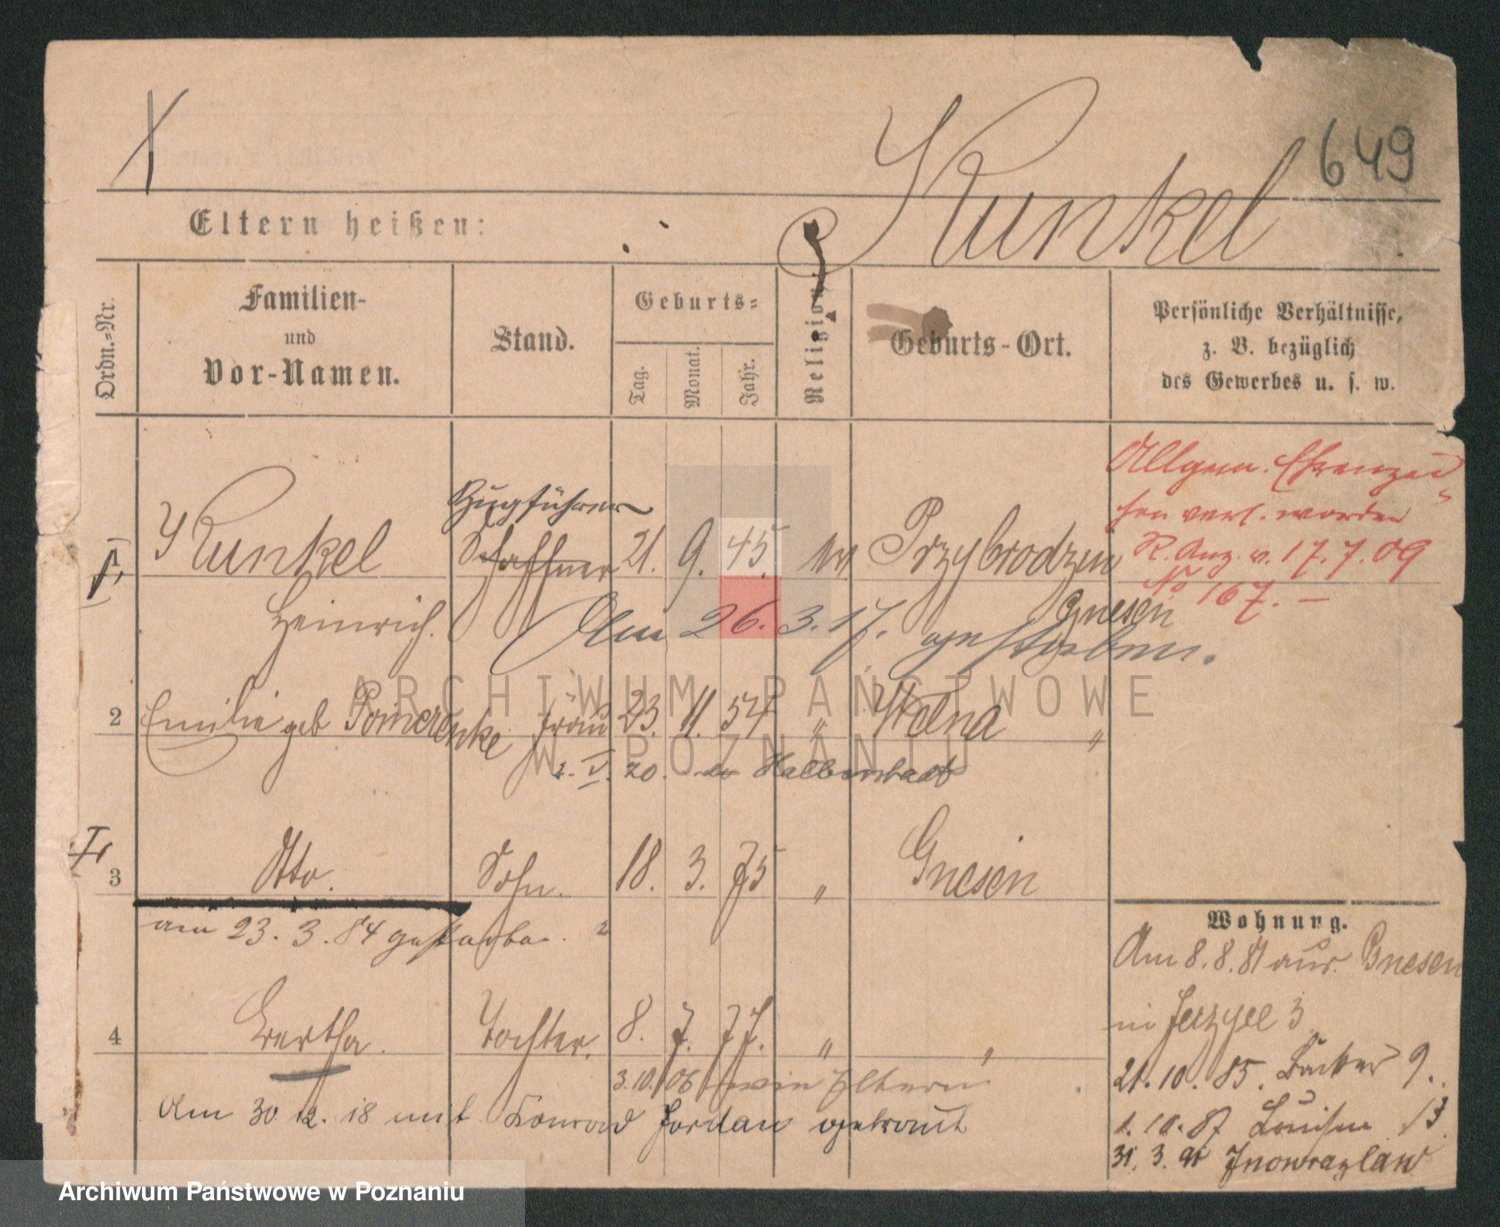 649
Kunkel
Eltern heißen:
Ordn.-Nr.
Familien-
und
Vor-Namen.
Stand.
Geburts-
Tag.
Monat.
Jahr.
Religion.
Geburts-Ort.
Persönliche Verhältnisse,
z. B. bezüglich
des Gewerbes u. s. w.
Allgem. Ehrenzei
chen verl. worden
R. Anz. v. 17.7.09
No 167. —
Zugführer
1 Kunkel Schaffner 21. 9. 45. ev Przybrodzin
Heinrich. Gnesen
Am 26. 3. 17. gestorben.
2 Emilie geb Pomerenke Frau 23. 11. 54 " Welna "
20. Halberstadt
3 Otto. Sohn. 18. 3. 75 " Gnesen
am 23. 3. 84 gestorben.
4 Bertha. Tochter. 8. 7. 77. " "
3.10.06 Eltern
Am 30. 12. 18 mit Konrad Jordan getraut
Wohnung.
Am 8. 8. 81 aus Gnesen
in Jerzyce 3
21. 10. 85. Bäcker 9.
1. 10. 87 Louisen 13
31. 3. Inowrazlaw
ARCHIWUM PAŃSTWOWE
W POZNANIU
Archiwum Państwowe w Poznaniu